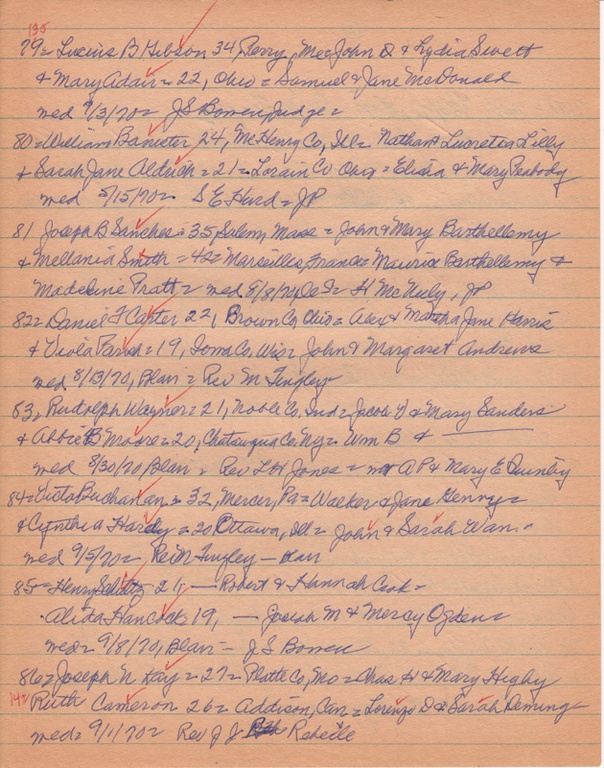 135
79 = Lucius B Gibson 34, Perry, Me = John D & Lydia Swett
& Mary Adair = 22, Ohio = Samuel & Jane McDonald
med 9/3/70 = J S Bowen Judge =
80 = William Banister 24, McHenry Co, Ill = Nathan & Lucretia Lilly
& Sarah Jane Aldrich = 21 = Lorain Co Ohio = Elisia & Mary Peabody
med 5/15/70 = S E Hurd = JP
81 Joseph B Sanches = 35, Salem, Mass = John & Mary Barthellemy
& Mellania Smith = 42 = Marseilles, France = Maurice Barthellemy &
Madeline Pratt = med 8/8/70 = H McNuly, JP
82 = Daniel F Carter 22, Brown Co, Ohio = Alex & Martha Jane Harris
& Viola Parish = 19, Iowa Co, Wis = John & Margaret Andrews
med 8/13/70, Blair = Rev M Tingley
83, Rudolph Wagner = 21, Noble Co, Ind = Jacob & Mary Sanders
& Abbie B Moore = 20, Chatauqua Co, Ny = Wm B &
med 8/30/70, Blair = Rev L H Jones = A P & Mary E Quinby
84 = Victa Buchanan = 32, Mercer, Pa = Walker & Jane Henry =
& Cynthia Hardy = 20 Ottawa, Ill = John & Sarah Wan
med 9/5/70 = Rev M Tingley — Blair
85 = Henry Schultz 21 — Robert & Hannah Cook =
Alida Hancock 19, — Josiah M & Mercy Ogden =
med = 9/8/70, Blair = J S Bowen
86 = Joseph N Kay = 27 = Platte Co, Mo = Chas H & Mary Higby
142 Ruth Cameron 26 = Addison, Can = Lorenzo D & Sarah Deming
med = 9/1/70 = Rev J J Roheile